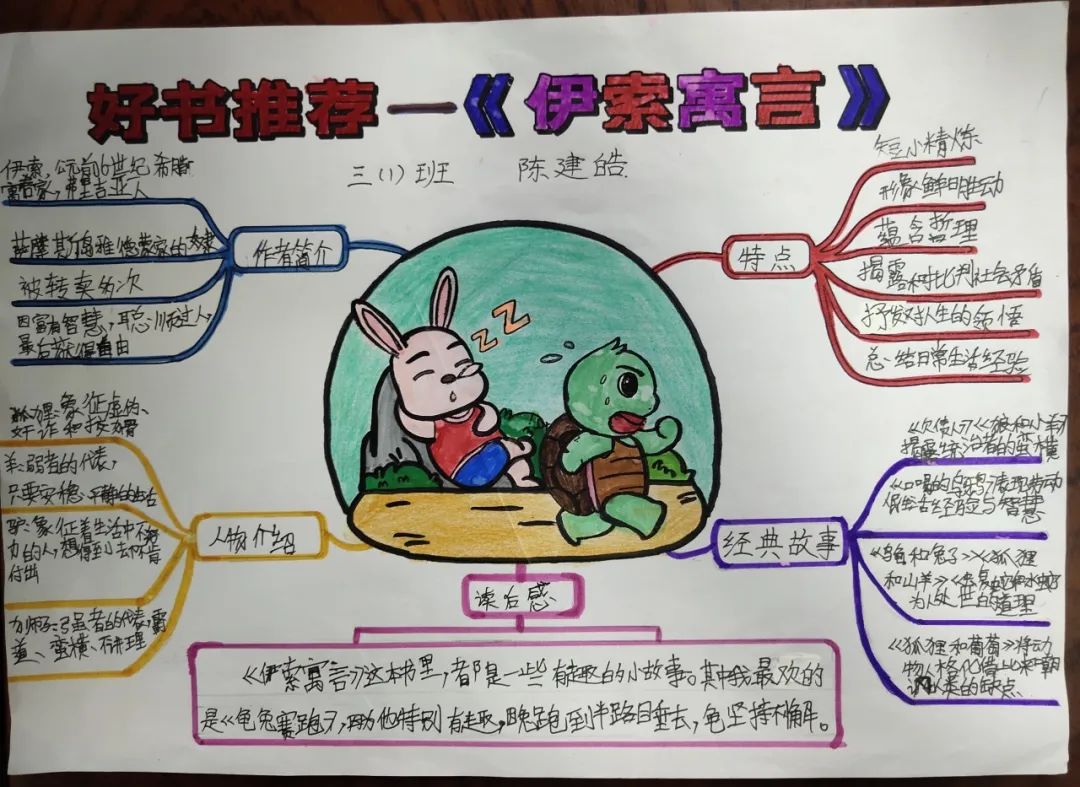 好书推荐—《伊索寓言》
三(1)班 陈建皓
作者简介
伊索,公元前6世纪希腊
寓言家,弗里吉亚人
萨摩斯岛雅德蒙家的
被转卖多次
因富有智慧,聪
最后获得自由
特点
短小精炼
形象鲜明生动
蕴含哲理
揭露和批判社会矛盾
抒发对人生的领悟
总结日常生活经验
人物介绍
狐狸:象征虚伪、
奸诈和狡猾
羊:弱者的代表,
只要安稳、平静的生活
驴:象征着生活中不努
力的人,想得到去不肯
付出
狮子:强者的代表,霸
道、蛮横、不讲理
经典故事
《狼和小羊》
揭露统治者的蛮横
《口渴的乌鸦》表现劳动
人民总结经验与智慧
《龟和兔子》《狐狸
和山羊》
为人处世的道理
《狐狸和葡萄》将动
物人格化
人类的缺点
读后感
《伊索寓言》这本书里,都是一些有趣的小故事。其中我最欢的
是《龟兔赛跑》,因为他特别有趣,兔跑到半路目垂去,龟坚持不懈。